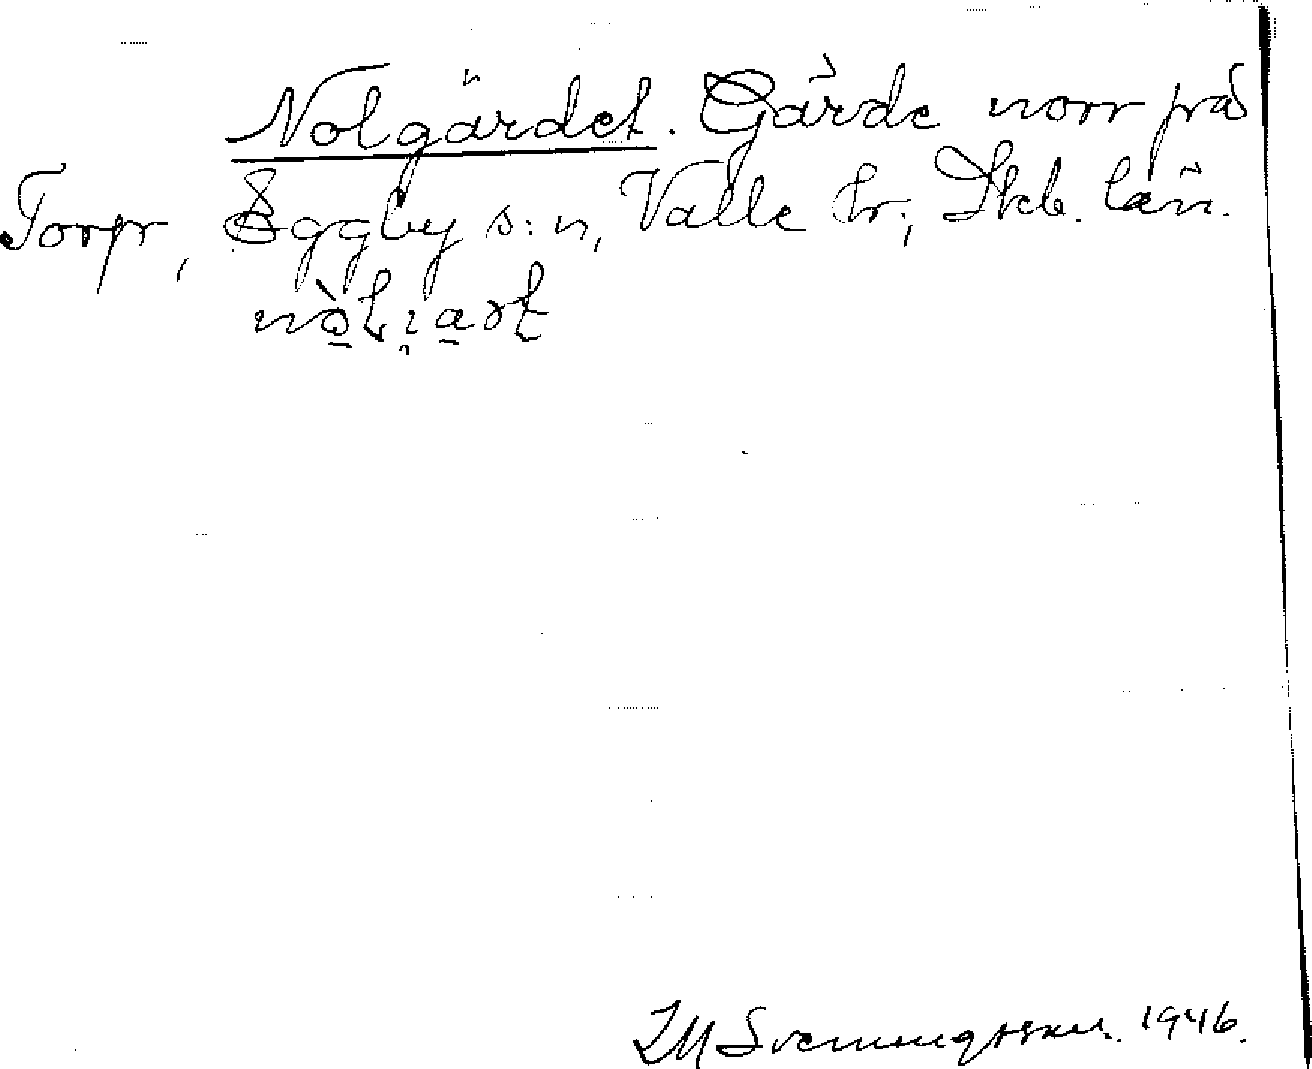 Nolgärdet. Gärde norr på
Torp, Eggby s:n, Valle hr; Skb. län.
JM Svenningsson. 1946.